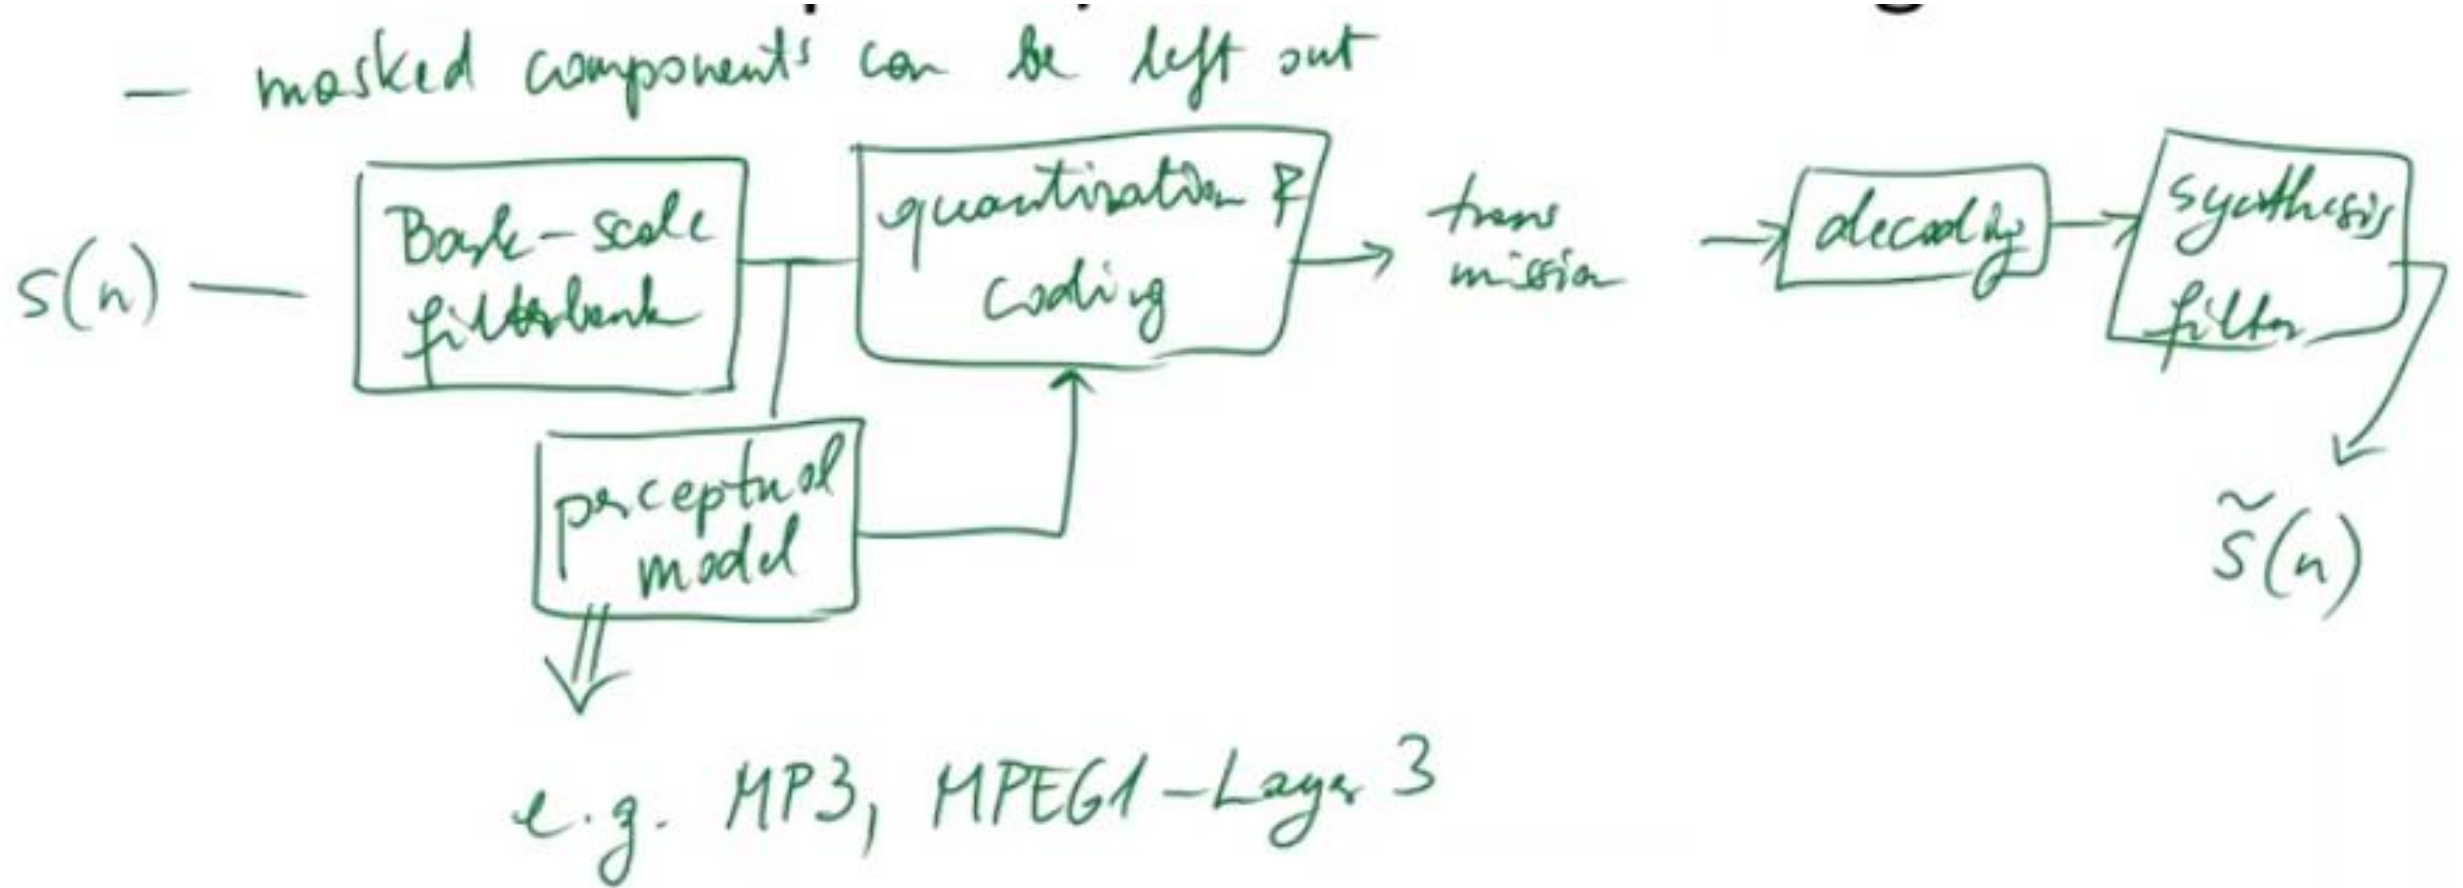 — masked components can be left out
s(n)
Bark-scale
filterbank
quantization &
coding
trans
mission
decoding
synthesis
filter
perceptual
model
s̃(n)
e.g. MP3, MPEG1-Layer 3